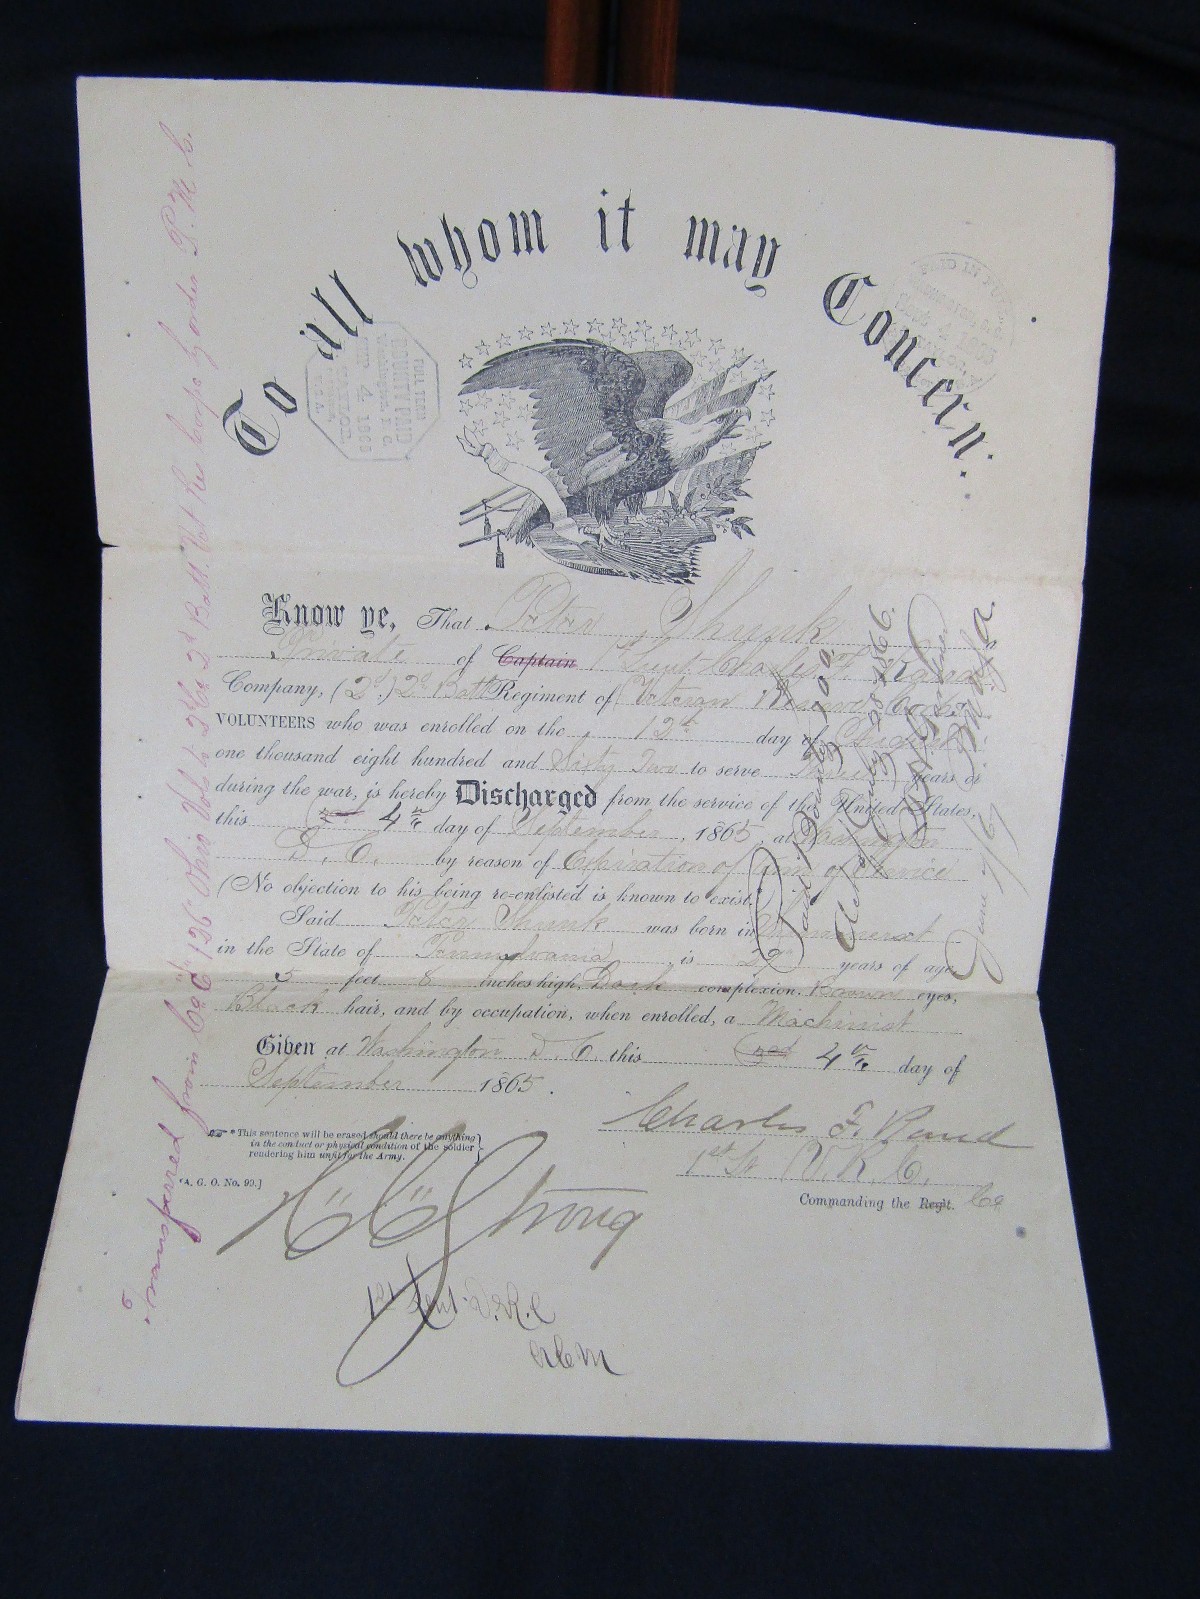 To all whom it may Concern:
FULL TERM
BOUNTY PAID
Washington, D. C.
SEP 4 1865
TAYLOR,
U.S.A.
PAID IN FULL
SEP 4 1865
Know ye, That Peter Shunk
Private of Captain 1st Lieut. Charles F. Rand
Company, (2d.) 2d Batt Regiment of Veteran Reserve Corps
VOLUNTEERS who was enrolled on the 12th day of
one thousand eight hundred and Sixty Two to serve Three years or
during the war, is hereby Discharged from the service of the United States,
this 4th day of September, 1865, at Washington
D. C. by reason of Expiration of Term of Service
(No objection to his being re-enlisted is known to exist.*)
Said Peter Shunk was born in
in the State of Pennsylvania, is 29 years of age,
5 feet 8 inches high, Dark complexion, Brown eyes,
Black hair, and by occupation, when enrolled, a Machinist
Given at Washington D. C. this 3rd 4th day of
September 1865.
Charles F. Rand
1st Lt V. R. C.
Commanding the Reg't. Co
*This sentence will be erased should there be anything
in the conduct or physical condition of the soldier
rendering him unfit for the Army.
[A. G. O. No. 99.]
Strong
1st Lieut. V.R.C
ACM
Transferred from Co "C" 126" Ohio Vols to 2d Co 2d Batt. Vet Res Corps by order P. M. G.
Paid Bounty 100.
Act of July 28 1866.
June /67